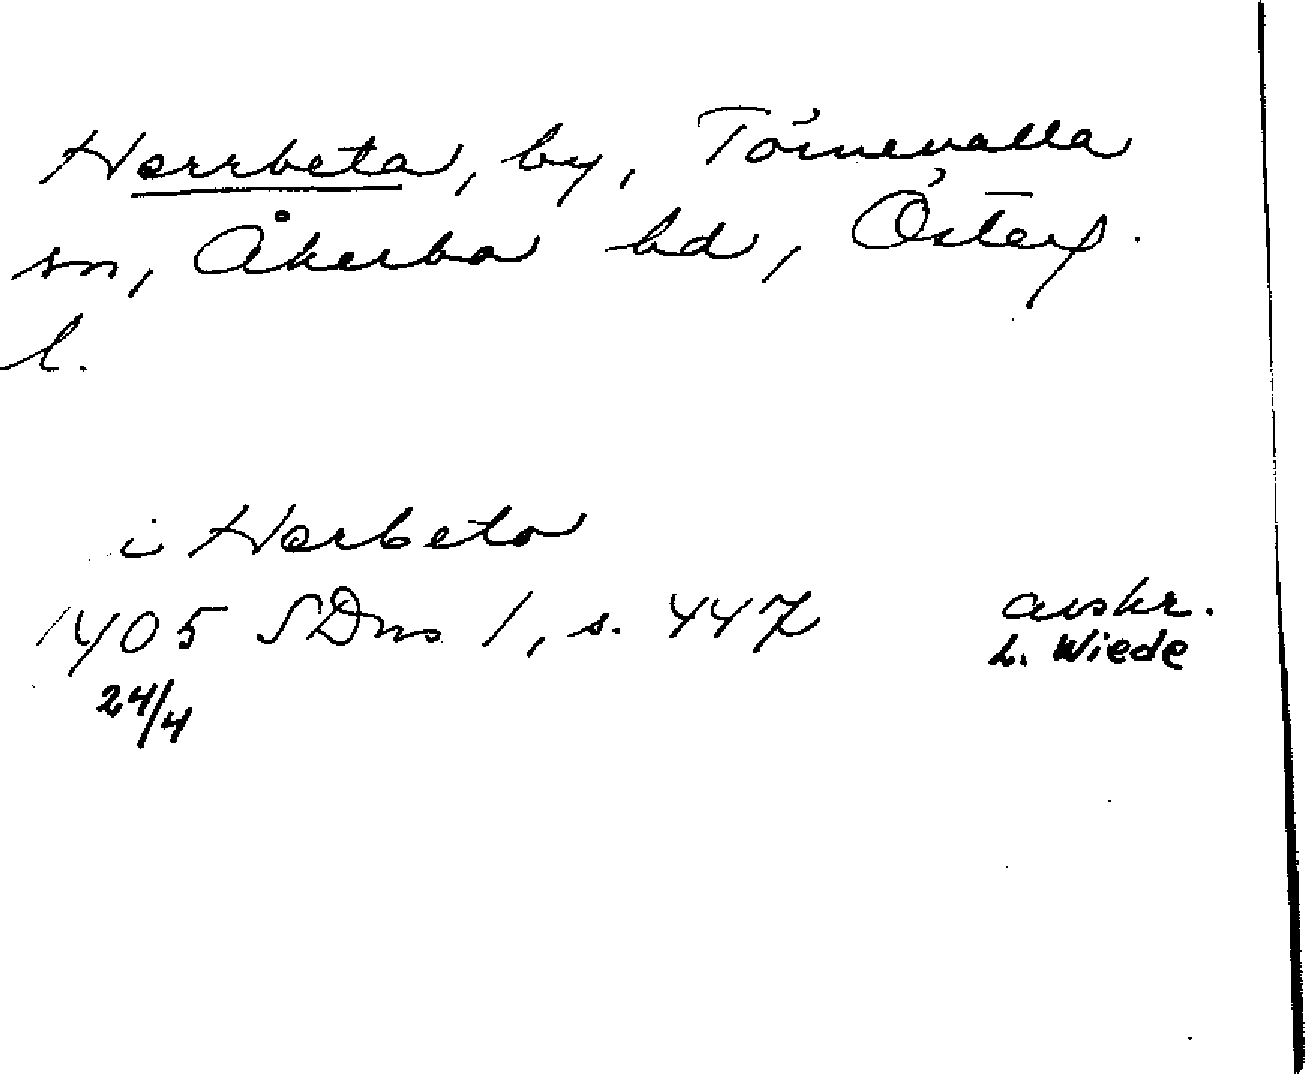 Herrbeta, by, Törnevalla
sn, Åkerbo hd, Österg.
l.
i Herbeto
1405 SDns 1, s. 447 avskr.
24/4 L. Wiede